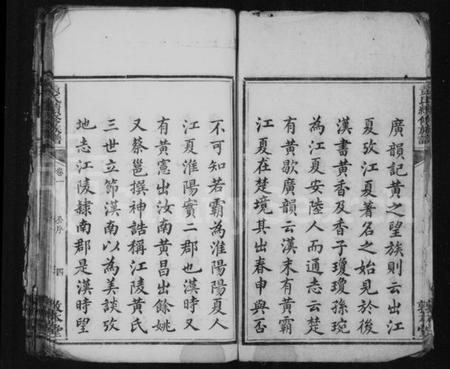 廣韻記黄之望族則云出江
夏攷江夏著名之始見於後
漢書黄香及香子瓊瓊孫琬
為江夏安陸人而通志云楚
有黄歇廣韻云漢末有黄霸
江夏在楚境其出春申與否
不可知若霸為淮陽陽夏人
江夏淮陽實二郡也漢時又
有黄憲出汝南黄昌出餘姚
又蔡邕撰神誥稱江陵黄氏
三世立節漢南以為美談攷
地志江陵隸南郡是漢時望
卷一
四